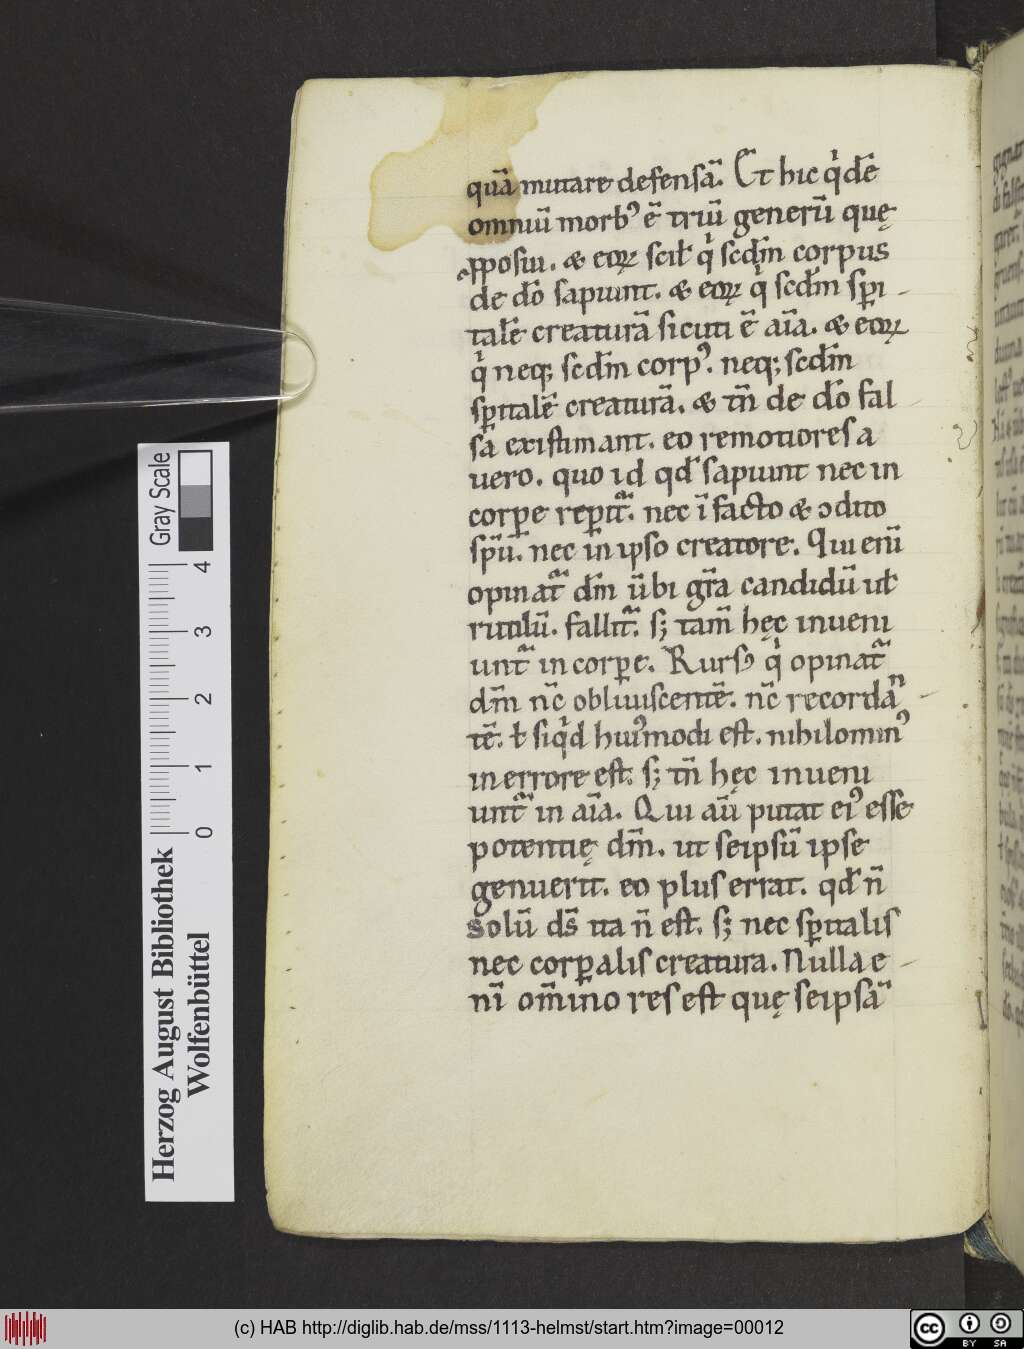 quã mutare defensã. Et hic q̇dẽ
omniũ morbꝰ ẽ triũ generũ quę
ꝓposui. & eoꝝ scil̛ q̇ scdm̃ corpus
de dõ sapiunt. & eoꝝ q̇ scdm̃ sp̃i
talẽ creaturã sicuti ẽ aĩa. & eoꝝ
q̇ neqꝫ scdm̃ corpꝰ. neqꝫ scdm̃
sp̃italẽ creaturã. & tñ de dõ fal
sa existimant. eo remotiores a
uero. quo id qd̛ sapiunt nec in
corꝑe reꝑit̃. nec ĩ facto & ↄdito
sp̃ũ. nec in ipso creatore. Qui enĩ
opinat̃ dm̃ ũbi gr̃a candidũ ul̛
rutilũ. fallit̃. sꝫ tam̃ hęc inueni
unt̃ in corꝑe. Rursꝰ q̇ opinat̃
dm̃ nc̃ obliuiscentẽ. nc̃ recordãn
tẽ. ł siq̇d huiꝰmodi est. nihilominꝰ
in errore est. sꝫ tñ hęc inueni
unt̃ in aĩa. Qui aũ putat eiꝰ esse
potentię dm̃. ut seipsũ ipse
genuerit. eo plus errat. qd̛ ñ
solũ ds̃ ita ñ est. sꝫ nec sp̃italis
nec corꝑalis creatura. Nulla e
nĩ om̃ino res est quę seipsã
Gray Scale
4
3
2
1
0
Herzog August Bibliothek
Wolfenbüttel
(c) HAB http://diglib.hab.de/mss/1113-helmst/start.htm?image=00012
cc
BY SA